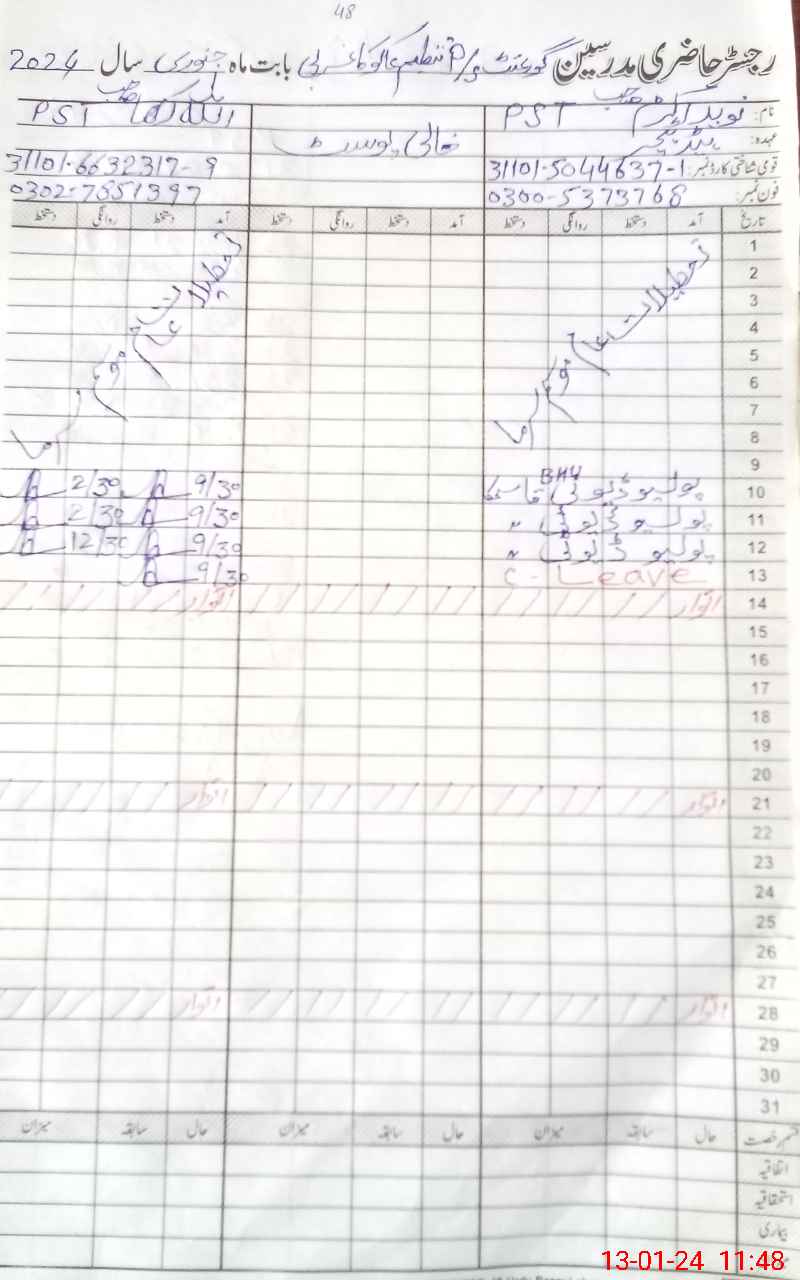 48
رجسٹر حاضری مدرسین گورنمنٹ P/S بابت ماہ جنوری سال 2024
نام: نوید اکرم صاحب PST اللہ رکھا صاحب PST
عہدہ: ہیڈ ٹیچر خالی پوسٹ
قومی شناختی کارڈ نمبر: 31101-5044637-1 31101-6632317-9
فون نمبر: 0300-5373768 0302-7851397
تاریخ آمد دستخط روانگی دستخط آمد دستخط روانگی دستخط آمد دستخط روانگی دستخط
1
2
3
4
5
6
7
8
تعطیلات عام موسم سرما تعطیلات عام موسم سرما
9
10 پولیو ڈیوٹی BHU 9/30 2/30
11 پولیو ڈیوٹی " 9/30 2/30
12 پولیو ڈیوٹی " 9/30 12/30
13 C-Leave 9/30
14 اتوار اتوار
15
16
17
18
19
20
21 اتوار اتوار
22
23
24
25
26
27
28 اتوار اتوار
29
30
31
قسم رخصت حال سابقہ میزان حال سابقہ میزان حال سابقہ میزان
اتفاقیہ
استحقاقیہ
بیماری
13-01-24 11:48